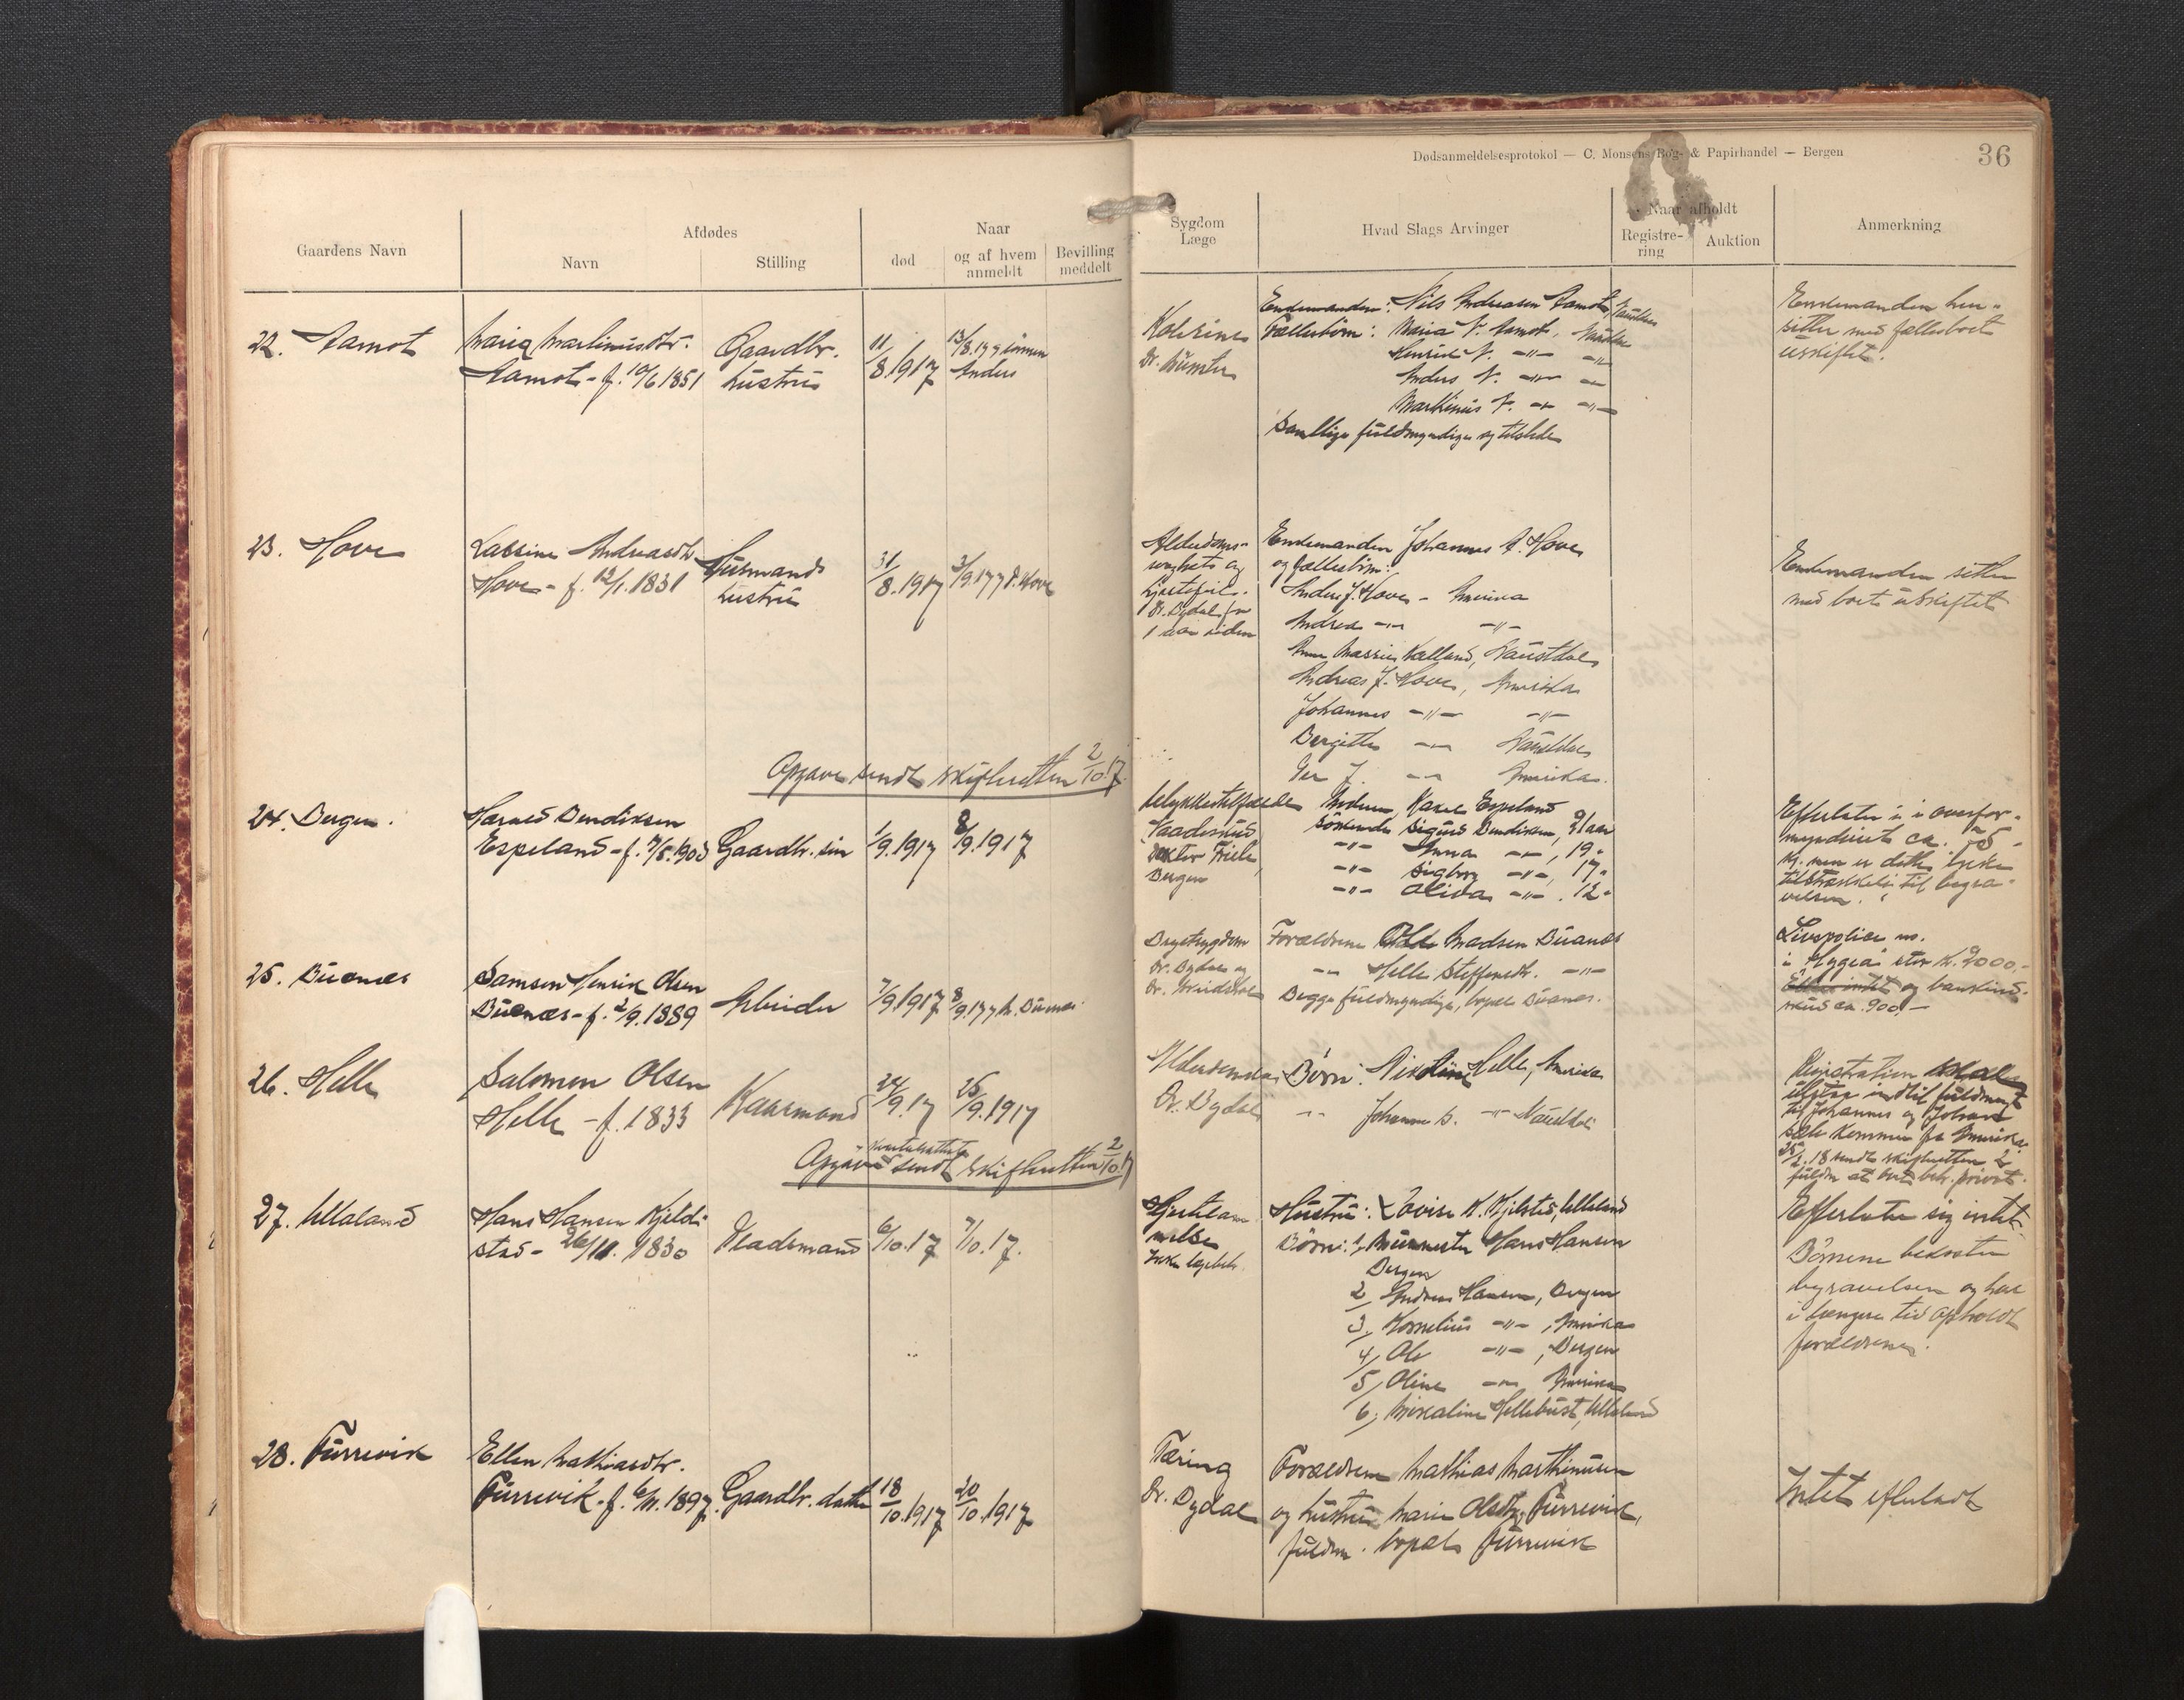 Dødsanmeldelsesprotokol — C. Monsens Bog- & Papirhandel — Bergen
36
Gaardens Navn
Afdødes
Navn
Stilling
Naar
død
og af hvem anmeldt
Bevilling meddelt
Sygdom
Læge
Hvad Slags Arvinger
Naar afholdt
Registre-
ring
Auktion
Anmerkning
22. Aamot
Maria Martinusdtr.
Aamot - f. 10/6 1851
Gaardbr.
hustru
11/8.1917
13/8.17 sønnen
Anders
Dr.
Enkemanden: Nils Andreasen Aamot, Naustdal
Fællesbørn: Maria N. Aamot, Naustdal
Henrik N. -"- -"-
Anders N. -"- -"-
Martinus N. -"- -"-
Samtlige fuldmyndige og tilstede
Enkemanden hen-
sitter med fællesboet
uskiftet.
23. Hove
Lassine Andreasdtr.
Hove - f. 12/1.1831
Husmands
hustru
31/8.1917
3/9.17 J. Hove
Alderdoms-
svaghets og
hjertefeil.
Dr. Dydal for
1 aar siden
Enkemanden Johannes A. Hove
og fællesbørn:
Anders J. Hove - Amerika
Andrea -"- -"-
Anna Massine Kalland, Naustdal
Andreas J. Hove, Amerika
Johannes -"- -"-
Bergitte -"- Naustdal
Iver J. -"- Amerika.
Enkemanden sitter
med boet uskiftet
Opgave sendt skifteretten 2/10.17.
24. Bergen.
Harald Bendiksen
Espeland - f. 7/5.1903
Gaardbr. søn
1/9.1917
8/9.1917
Ulykkestilfælde
Vaadeskud
Doktor Friele,
Bergen
Moderen, Karen Espeland
Søskende Sigurd Bendiksen, 21 aar
-"- Anna -"-, 19 "
-"- Sigborg -"-, 17 "
-"- Olida -"-. 12 "
Efterlater i overfor-
mynderiet ca. 75 -
kr. men er dette ikke
tilstrækkelig til begra-
velsen.
25. Buenæs
Samson Henrik Olsen
Buenæs - f. 2/9.1889
Arbeider
7/9.1917
8/9.17 M. Buenæs
Brystsygdom
Dr. Dydal og
Dr.
Forældrene Ole Madsen Buenæs
-"- Helle Steffensdtr. -"-
Begge fuldmyndige, bopæl Buenæs.
Livspolice no.
i "Hygea" stor K. 2000.-
og bankind-
skud ca. 900,-
26. Helle
Salomon Olsen
Helle - f. 1833
Kaarmand
24/9.17
25/9.1917
Alderdom
Dr. Dydal
Børn: Nikoline Helle, Amerika
-"- Johannes S. -"- Naustdal
Registration
utstaa indtil fuldmagt
til Johannes og
Helle kommer fra Amerika.
25/2.18 sendt skifteretten 2
fuldm. at boet beh. privat.
Opgave sendt skifteretten 2/10.17
27. Ullaland
Hans Hansen Kjeld-
stad - 26/11. 1830
Pladsmand
6/10.17
7/10.17.
Hjertelam-
melse
Ikke lægebeh.
Hustru: Lovise K. Kjelstad, Ulleland
Børn: 1, Murmester Hans Hansen
Bergen
2, Andreas Hansen, Bergen
3, Kornelius -"-, Amerika
4, Ole -"-, Bergen
5, Oline -"- Amerika
6, Mikaline Hellebust, Ulleland
Efterlater sig intet.
Børnene bekoster
begravelsen og har
i længere tid opholdt
forældrene.
28. Furrevik
Ellen Mathiasdtr.
Furrevik - f. 6/11.1897.
Gaardbr. datter
18/10.1917
20/10.1917
Tæring
Dr. Dydal
Forældrene Mathias Marthinusen
og hustru Marie Olsdtr. Furrevik,
fuldm. bopæl Furrevik
Intet efterladt